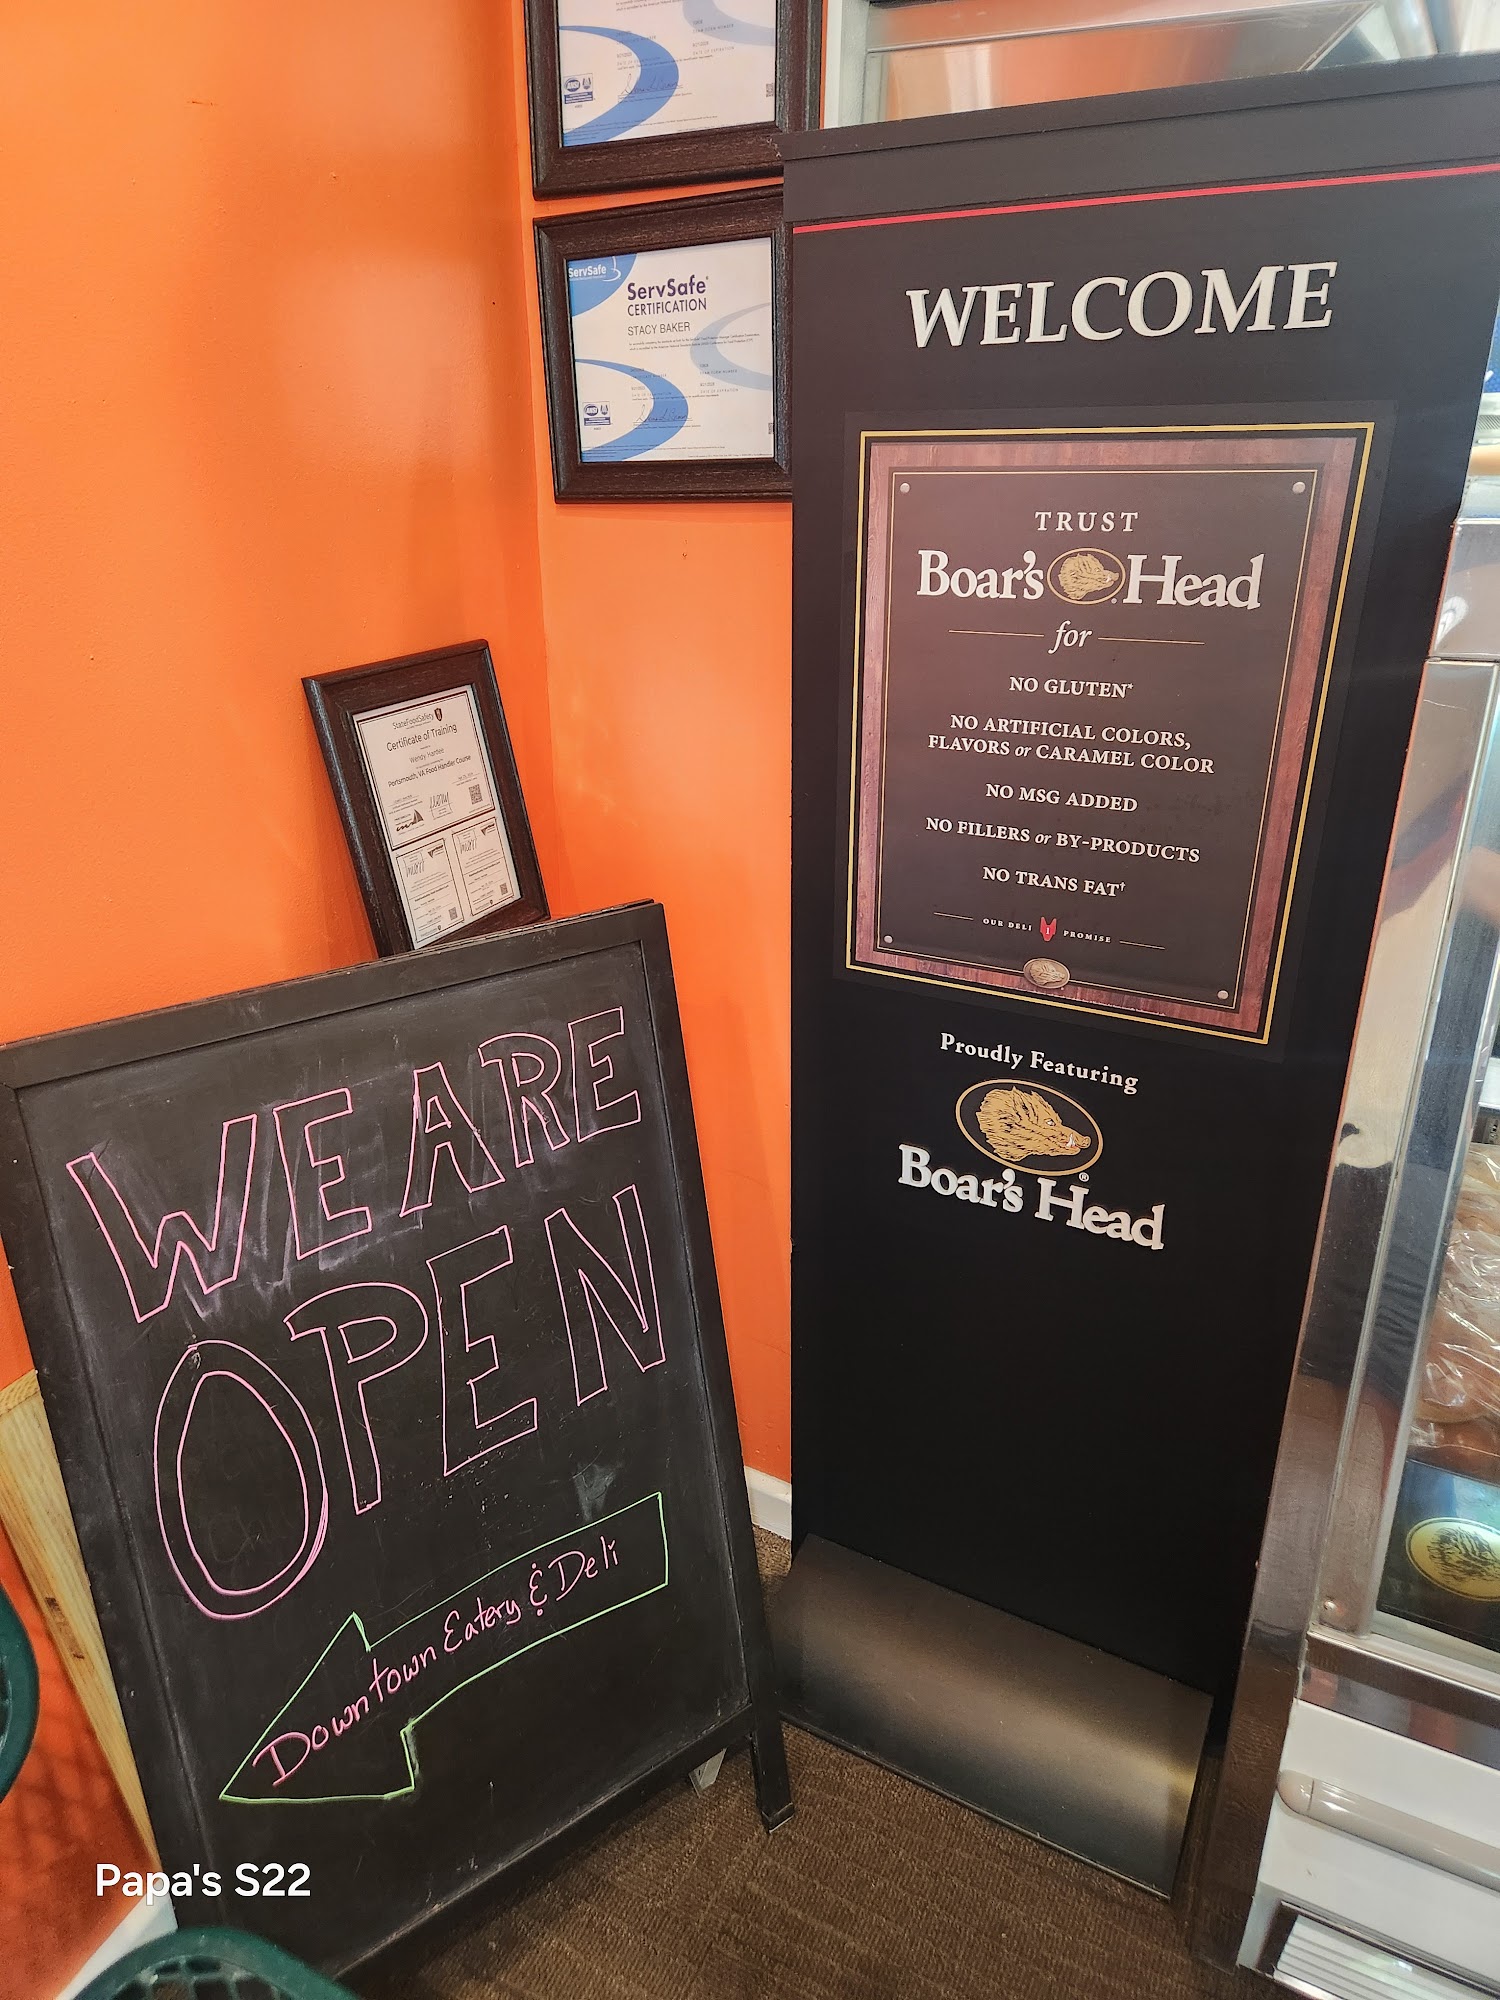 ServSafe
ServSafe®
CERTIFICATION
STACY BAKER
StateFoodSafety
Certificate of Training
Wendy Hardee
Portsmouth, VA Food Handler Course
WE ARE
OPEN
Downtown Eatery & Deli
WELCOME
TRUST
Boar's Head
for
NO GLUTEN*
NO ARTIFICIAL COLORS,
FLAVORS or CARAMEL COLOR
NO MSG ADDED
NO FILLERS or BY-PRODUCTS
NO TRANS FAT†
OUR DELI 1 PROMISE
Proudly Featuring
Boar's Head®
Papa's S22